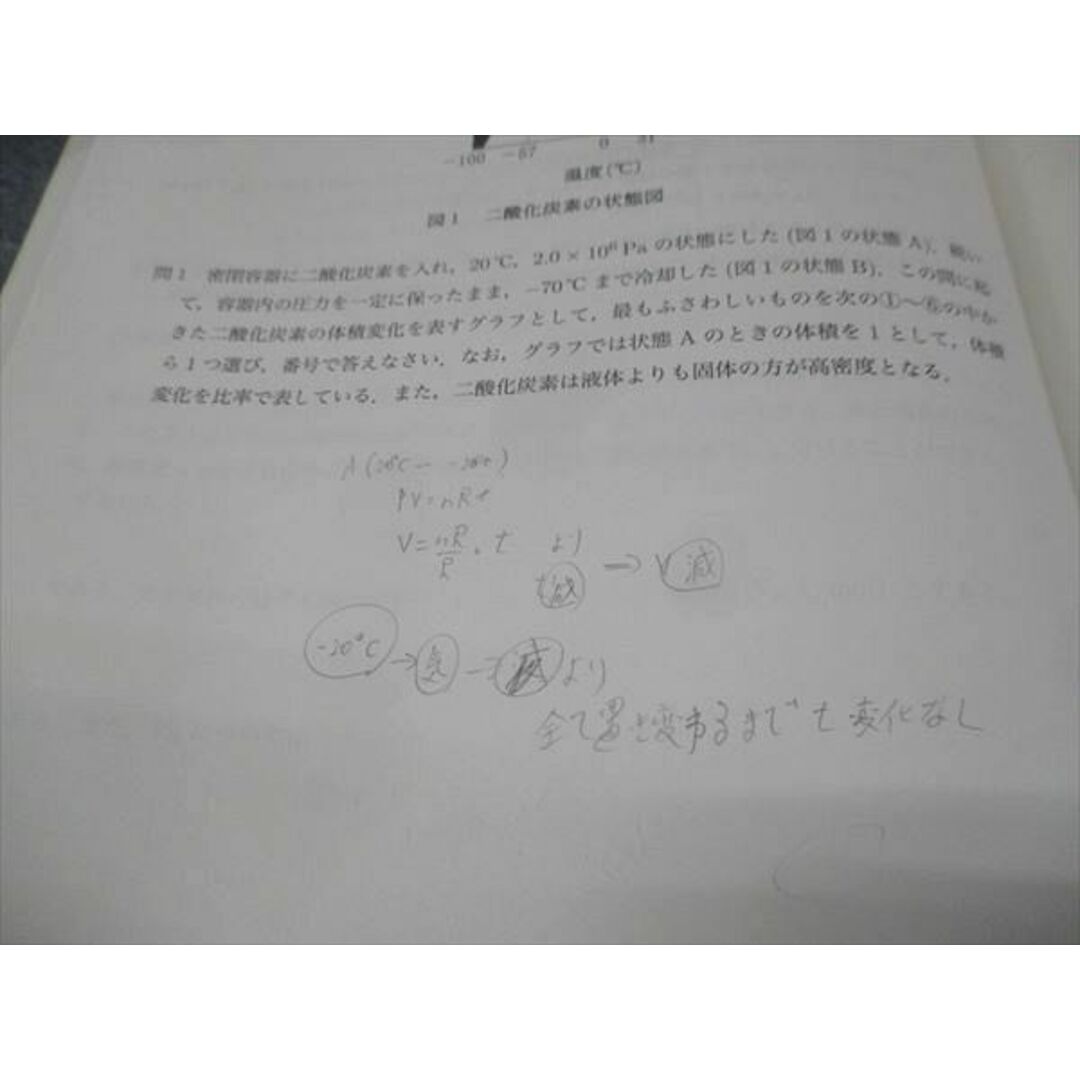 -100 -57 0 31
温度(℃)
図1 二酸化炭素の状態図
問1 密閉容器に二酸化炭素を入れ，20℃，2.0×10⁶Paの状態にした(図1の状態A)．続い
て，容器内の圧力を一定に保ったまま，-70℃まで冷却した(図1の状態B)．この間に起
きた二酸化炭素の体積変化を表すグラフとして，最もふさわしいものを次の①〜⑥の中か
ら1つ選び，番号で答えなさい．なお，グラフでは状態Aのときの体積を1として，体積
変化を比率で表している．また，二酸化炭素は液体よりも固体の方が高密度となる．
A (20℃ ー -20℃)
PV=nRt
V=nR/P・t より
t減 → V減
-20℃ → 気 → より
全て置き変わるまで t 変化なし